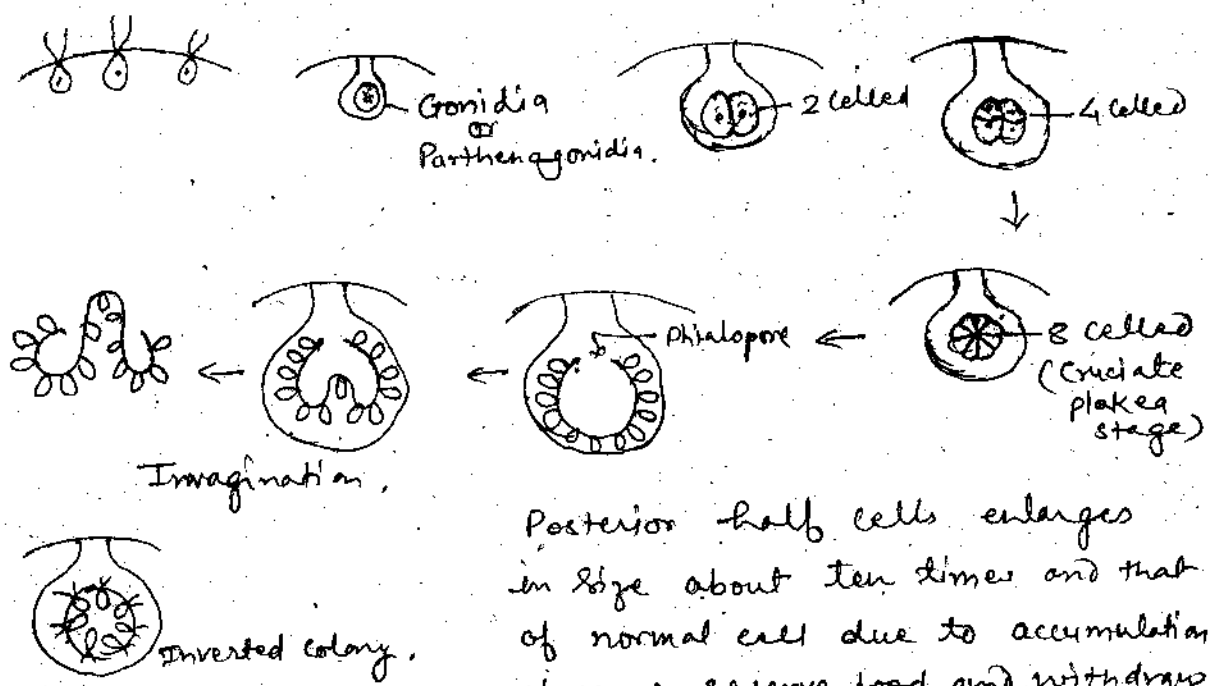 Gonidia
or
Parthenogonidia.
2 celled
4 celled
8 celled
(Cruciate
plakea
stage)
Phialopore
Invagination.
Posterior half cells enlarges
in size about ten times and that
of normal cell due to accumulation
reserve food and withdraws
Inverted colony.